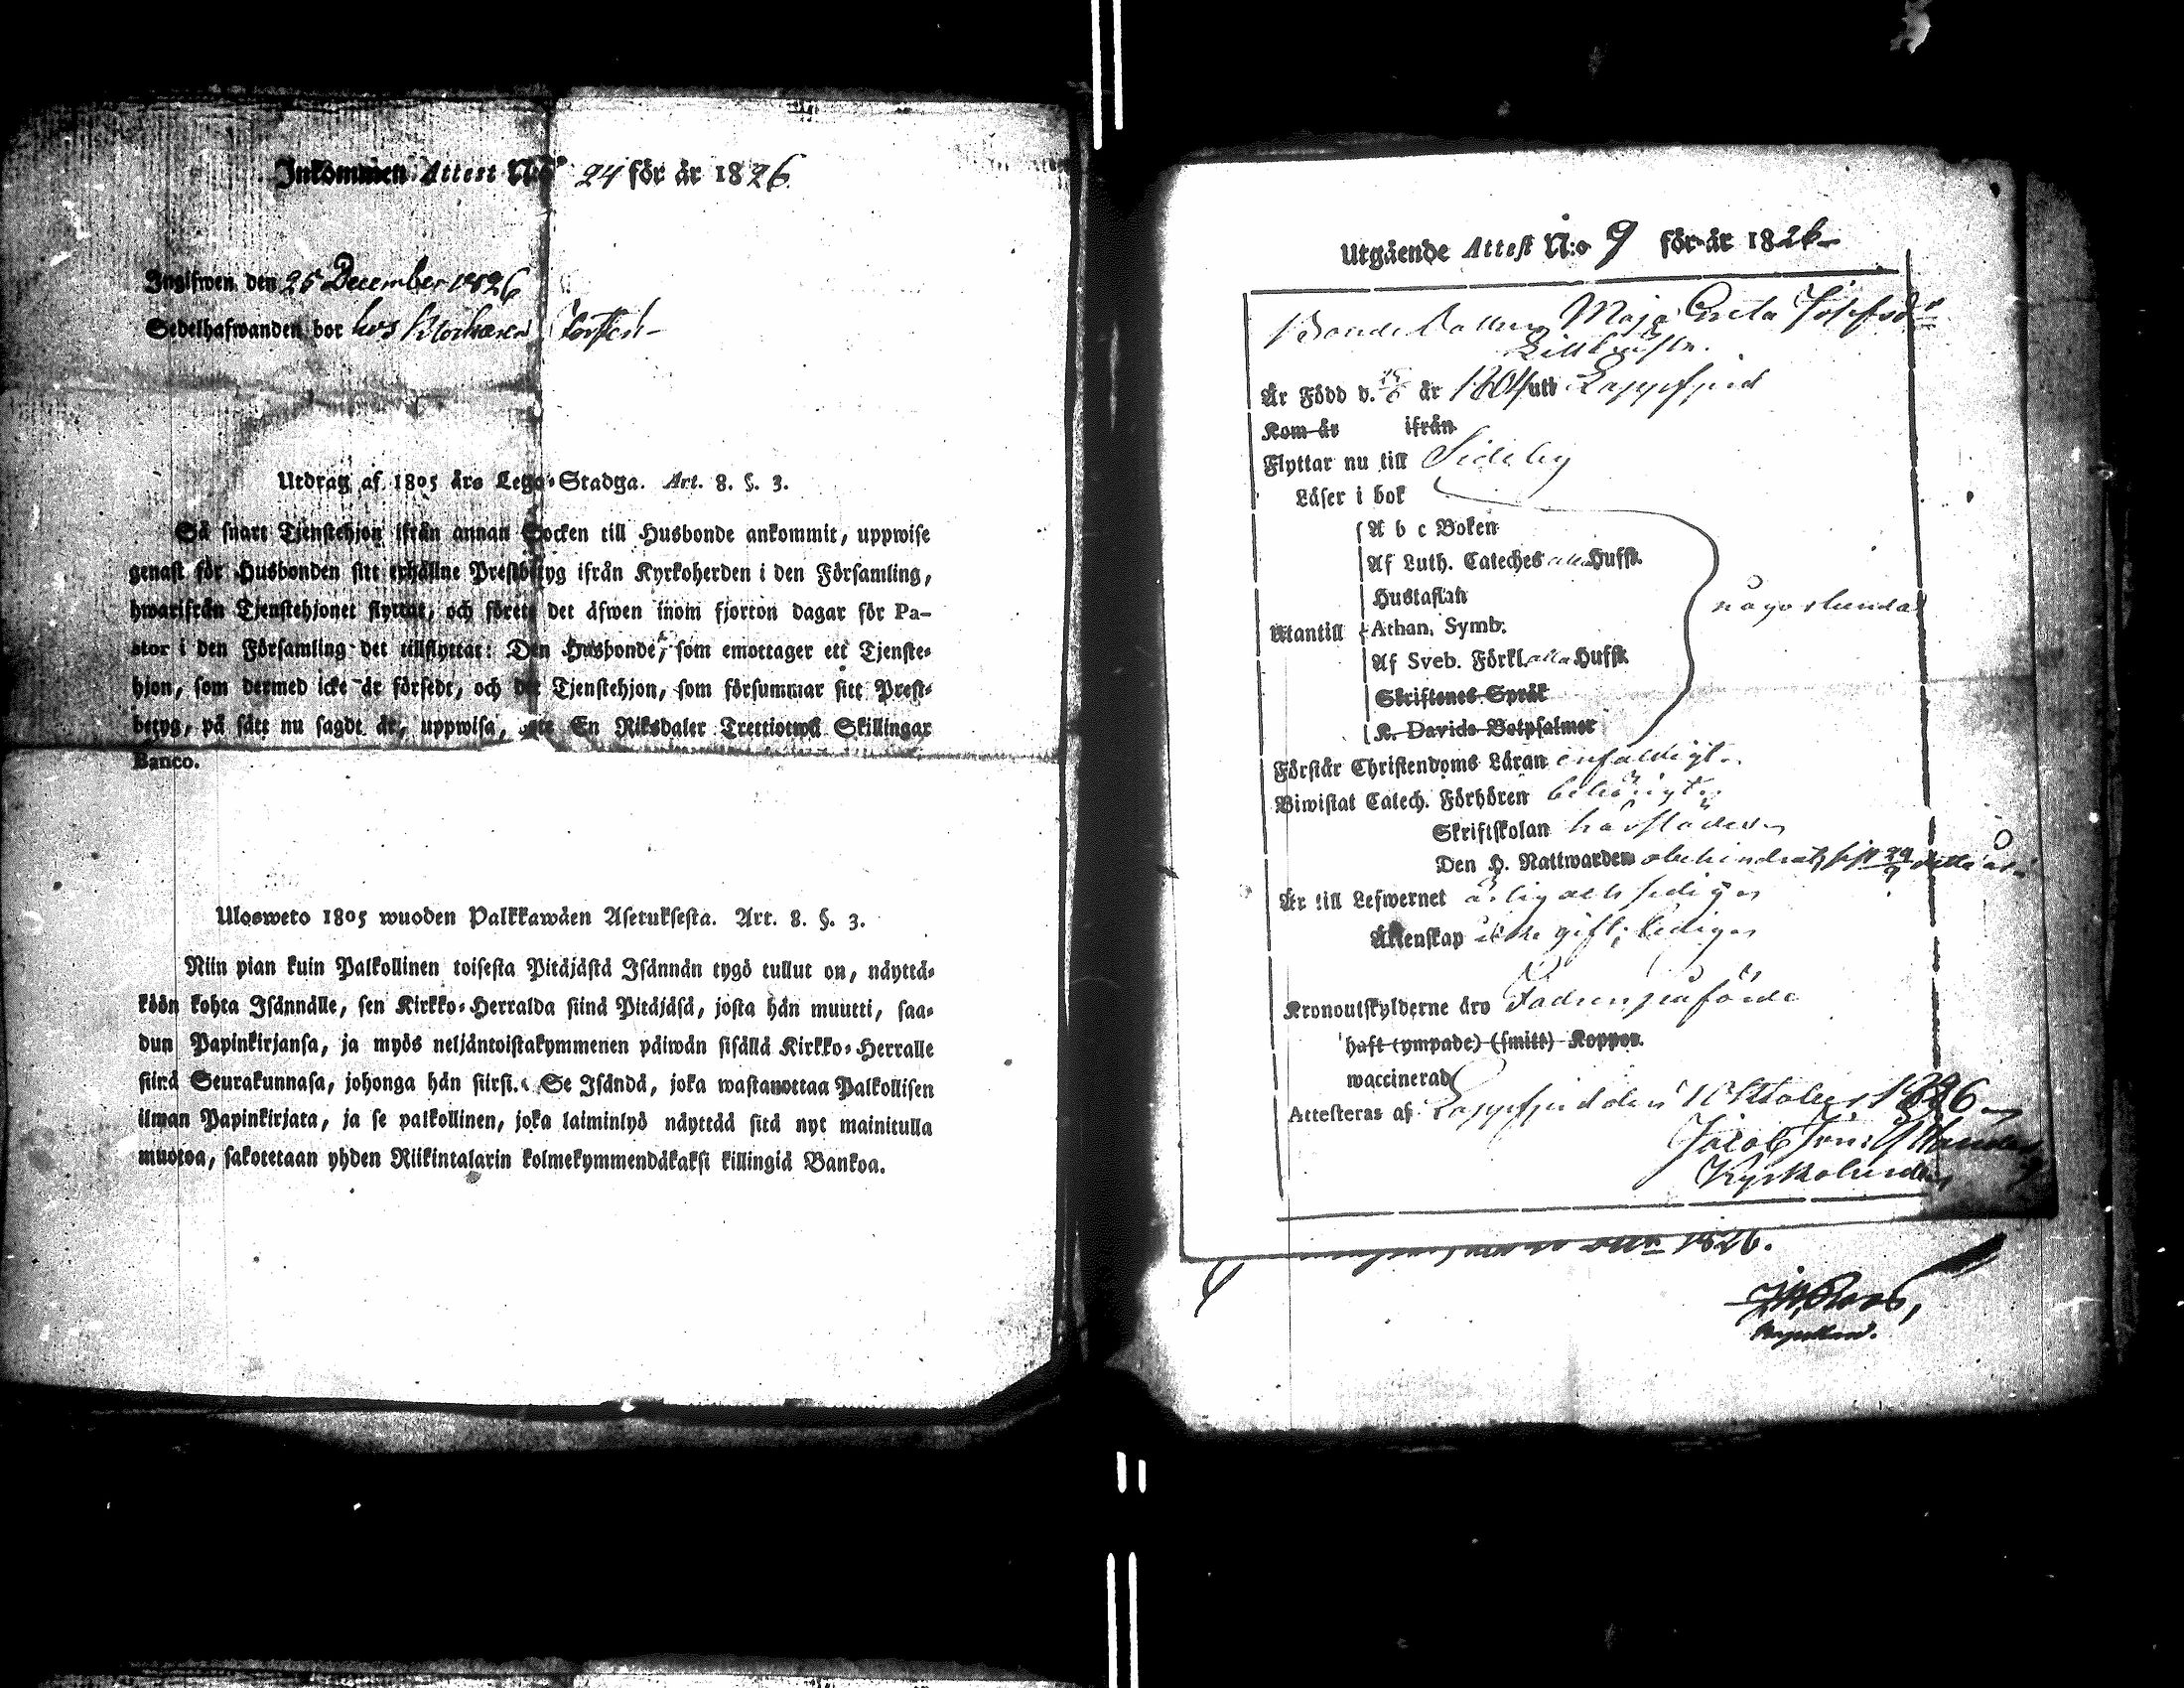 Inkommen Attest N:o 24 för år 1826.
Ingifwen den 25 December 1826
Sedelhafwanden bor hos Klockaren
Utdrag af 1805 års Lego-Stadga. Art. 8. §. 3.
Så snart Tjenstehjon ifrån annan Socken till Husbonde ankommit, uppwise
genast för Husbonden sitt erhållne Prestbetyg ifrån Kyrkoherden i den Församling,
hwarifrån Tjenstehjonet flyttat, och förete det äfwen inom fjorton dagar för Pa-
stor i den Församling det tillflyttat: Den Husbonde, som emottager ett Tjenste-
hjon, som dermed icke är försedt, och det Tjenstehjon, som försummar sitt Prest-
betyg, på sätt nu sagdt är, uppwisa, En Riksdaler Trettiotwå Skillingar
Banco.
Ulosweto 1805 wuoden Palkkawäen Asetuksesta. Art. 8. §. 3.
Niin pian kuin Palkollinen toisesta Pitäjästä Isännän tygö tullut on, näyttä-
köön kohta Isännälle, sen Kirkko-Herralda siinä Pitäjäsä, josta hän muutti, saa-
dun Papinkirjansa, ja myös neljäntoistakymmenen päiwän sisällä Kirkko-Herralle
siinä Seurakunnasa, johonga hän siirsi. Se Isändä, joka wastanottaa Palkollisen
ilman Papinkirjata, ja se palkollinen, joka laiminlyö näyttää sitä nyt mainitulla
muotoa, sakotetaan yhden Riikintalarin kolmekymmendäkaksi killingiä Bankoa.
Utgående Attest N:o 9 för år 1826
Bonde Dottren Maja Greta Josefsdr
Är Född d. år 1804 uti Lappfjerd
Kom år ifrån
Flyttar nu till Sideby
Läser i bok
A b c Boken
Af Luth. Cateches alla Huffst.
Hustaflan
någorlunda
Utantill Athan. Symb.
Af Sveb. Förkl. alla Huffst.
Skriftenes Språk
K. Davids Botpsalmer
Förstår Christendoms Läran enfaldigt
Biwistat Catech. Förhören behörigt
Skriftskolan härstädes
Den H. Nattwarden obehindrat, sist 29/9 detta år
Är till Lefwernet ärlig och sedig
Äktenskap icke gift; ledig
Kronoutskylderne äro
haft (ympade) (smitt) Koppor.
waccinerad
Attesteras af Lappfjerd den October 1826
Jacob
Kyrkoherde
1826.